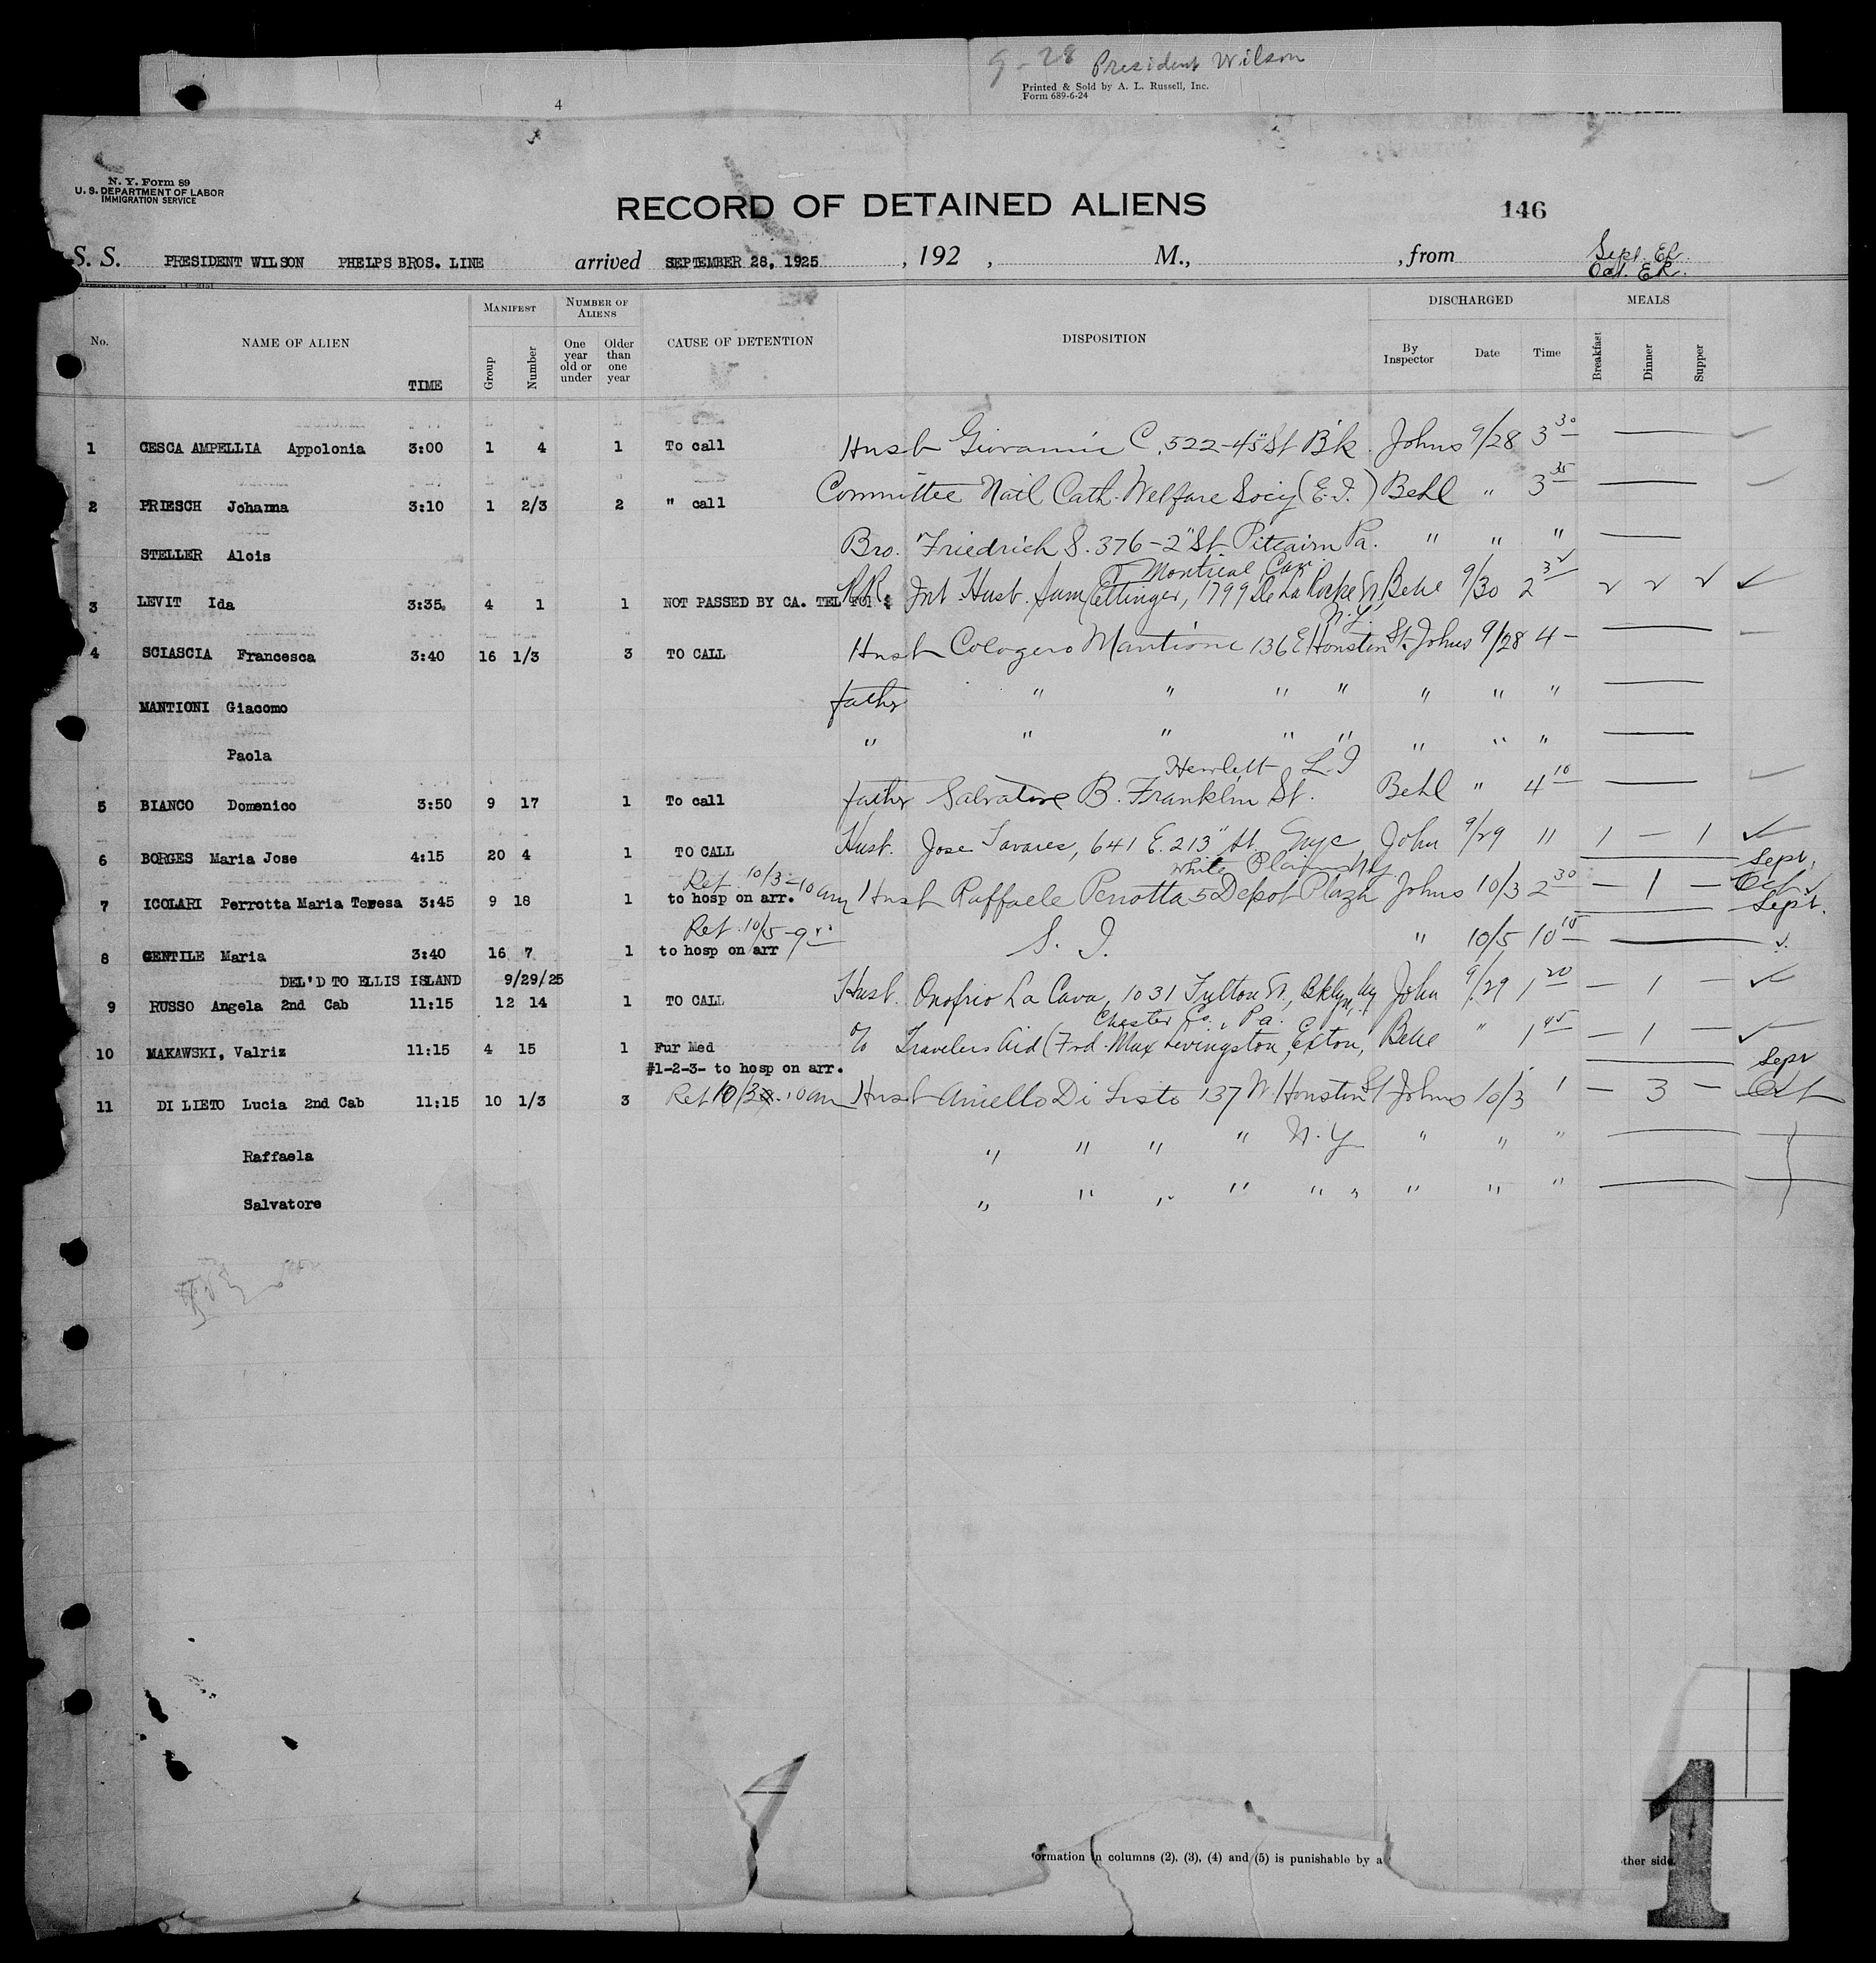 9-28 President Wilson
Printed & Sold by A. L. Russell, Inc.
Form 689-6-24
4
N. Y. Form 89
U. S. DEPARTMENT OF LABOR
IMMIGRATION SERVICE
RECORD OF DETAINED ALIENS
146
S. S. PRESIDENT WILSON PHELPS BROS. LINE arrived SEPTEMBER 28, 1925, 192 , M., , from
Sept. ER.
Oct. ER.
No. NAME OF ALIEN TIME MANIFEST Group Number NUMBER OF ALIENS One year old or under Older than one year CAUSE OF DETENTION DISPOSITION DISCHARGED By Inspector Date Time MEALS Breakfast Dinner Supper
1 CESCA AMPELLIA Appolonia 3:00 1 4 1 To call Husb Giovanni C. 522-45" St Bk. Johns 9/28 3 30
2 PRIESCH Johanna 3:10 1 2/3 2 " call Committee Natl Cath. Welfare Socy (E.I.) Behl " 3 35
STELLER Alois Bro. Friedrich S. 376-2" St. Pitcairn Pa. " " "
Montreal, Can
3 LEVIT Ida 3:35 4 1 1 NOT PASSED BY CA. TEL TO: RR Jnt. Husb. Sam Ettinger, 1799 De La Roche St, Behl 9/30 2
N.Y.
4 SCIASCIA Francesca 3:40 16 1/3 3 TO CALL Husb Cologero Mantione 136 E Houston St. Johns 9/28 4 -
MANTIONI Giacomo father " " " " " " "
Paola " " " " " " " "
Hewlett L.I
5 BIANCO Domenico 3:50 9 17 1 To call father Salvatore B. Franklin St. Behl " 4 10
6 BORGES Maria Jose 4:15 20 4 1 TO CALL Husb. Jose Tavares, 641 E. 213" St. Nyc John 9/29 11 1 - 1
White Plains Ny Sept.
Ret. 10/3 - 10 am
7 ICOLARI Perrotta Maria Teresa 3:45 9 18 1 to hosp on arr. Husb Raffaele Perrotta 5 Depot Plaza Johns 10/3 2 30 - 1 - Oct
Sept.
Ret. 10/5 - 9
8 GENTILE Maria 3:40 16 7 1 to hosp on arr S. I. " 10/5 10 15
DEL'D TO ELLIS ISLAND 9/29/25
9 RUSSO Angela 2nd Cab 11:15 12 14 1 TO CALL Husb. Onofrio La Cava, 1031 Fulton St., Bklyn, Ny John 9/29 1 20 - 1 -
Chester Co., Pa.
10 MAKAWSKI, Valriz 11:15 4 15 1 Fur Med % Travelers Aid (Frd. Max Livingston, Exton, Behl " 1 45 - 1 -
#1-2-3- to hosp on arr. Sept
11 DI LIETO Lucia 2nd Cab 11:15 10 1/3 3 Ret 10/3 10 am Husb Aniello Di Lieto 137 W. Houston St Johns 10/3 1 - 3 - Oct
Raffaela " " " " N. Y " " "
Salvatore " " " " " " " " "
ormation in columns (2), (3), (4) and (5) is punishable by a
ther side.
1